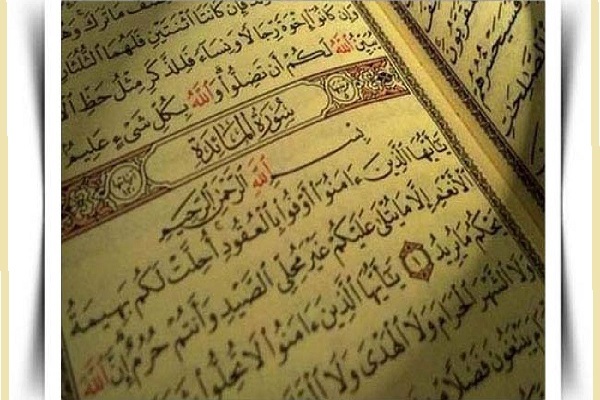 ما ترك وهو
فَإِن كَانَتَا ٱثْنَتَيْنِ فَلَهُمَا ٱلثُّلُثَانِ
وَإِن كَانُوٓا۟ إِخْوَةً رِّجَالًا وَنِسَآءً فَلِلذَّكَرِ مِثْلُ حَظِّ
يُبَيِّنُ ٱللَّهُ لَكُمْ أَن تَضِلُّوا۟ وَٱللَّهُ بِكُلِّ شَىْءٍ عَلِيمٌ
سُورَةُ المَائِدَةِ
بِسْمِ ٱللَّهِ ٱلرَّحْمَٰنِ ٱلرَّحِيمِ
يَٰٓأَيُّهَا ٱلَّذِينَ ءَامَنُوٓا۟ أَوْفُوا۟ بِٱلْعُقُودِ أُحِلَّتْ لَكُم بَهِيمَةُ
ٱلْأَنْعَٰمِ إِلَّا مَا يُتْلَىٰ عَلَيْكُمْ غَيْرَ مُحِلِّى ٱلصَّيْدِ وَأَنتُمْ حُرُمٌ إِنَّ ٱللَّهَ
يَحْكُمُ مَا يُرِيدُ ١ يَٰٓأَيُّهَا ٱلَّذِينَ ءَامَنُوا۟ لَا تُحِلُّوا۟
وَلَا ٱلشَّهْرَ ٱلْحَرَامَ وَلَا ٱلْهَدْىَ وَلَا
يَبْتَغُونَ فَضْلًا